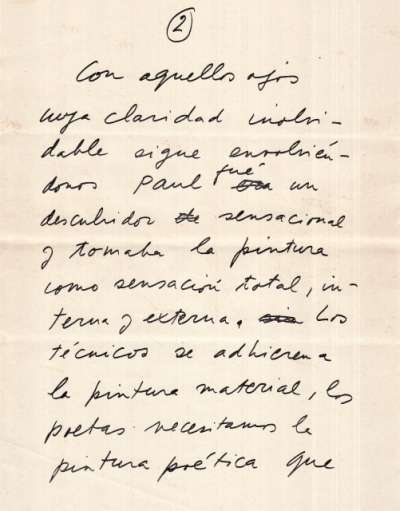 2
Con aquellos ojos
cuya claridad inolvi-
dable sigue envolvién-
donos Paul fué un
descubridor de sensacional
y tomaba la pintura
como sensación total, in-
terna y externa. Los
técnicos se adhieren a
la pintura material, los
poetas necesitamos la
pintura poética que